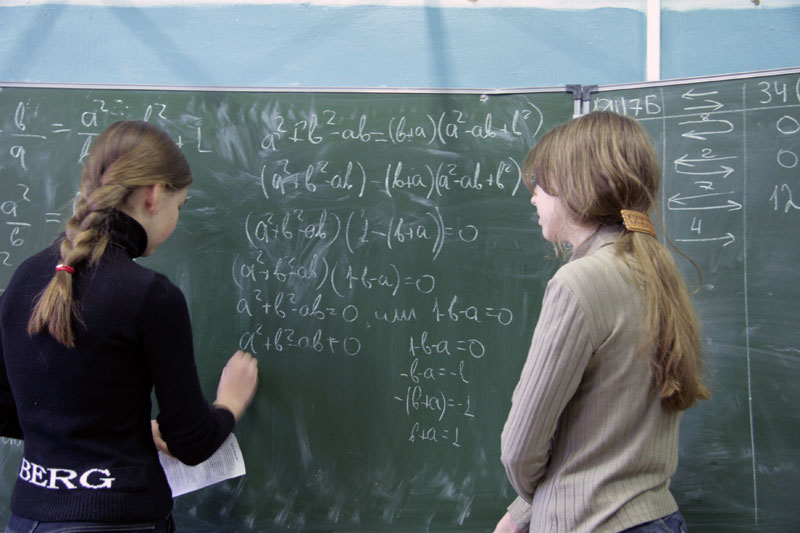 a²+b²-ab=(b+a)(a²-ab+b²)
(a²+b²-ab)-(b+a)(a²-ab+b²)
(a²+b²-ab)(1-(b+a))=0
(a²+b²-ab)(1-b-a)=0
a²+b²-ab=0 или 1-b-a=0
a²+b²-ab≠0
1-b-a=0
-b-a=-1
-(b+a)=-1
b+a=1
b/a = a²
+1
a²/b =
2
34
0
0
12
2
4
BERG